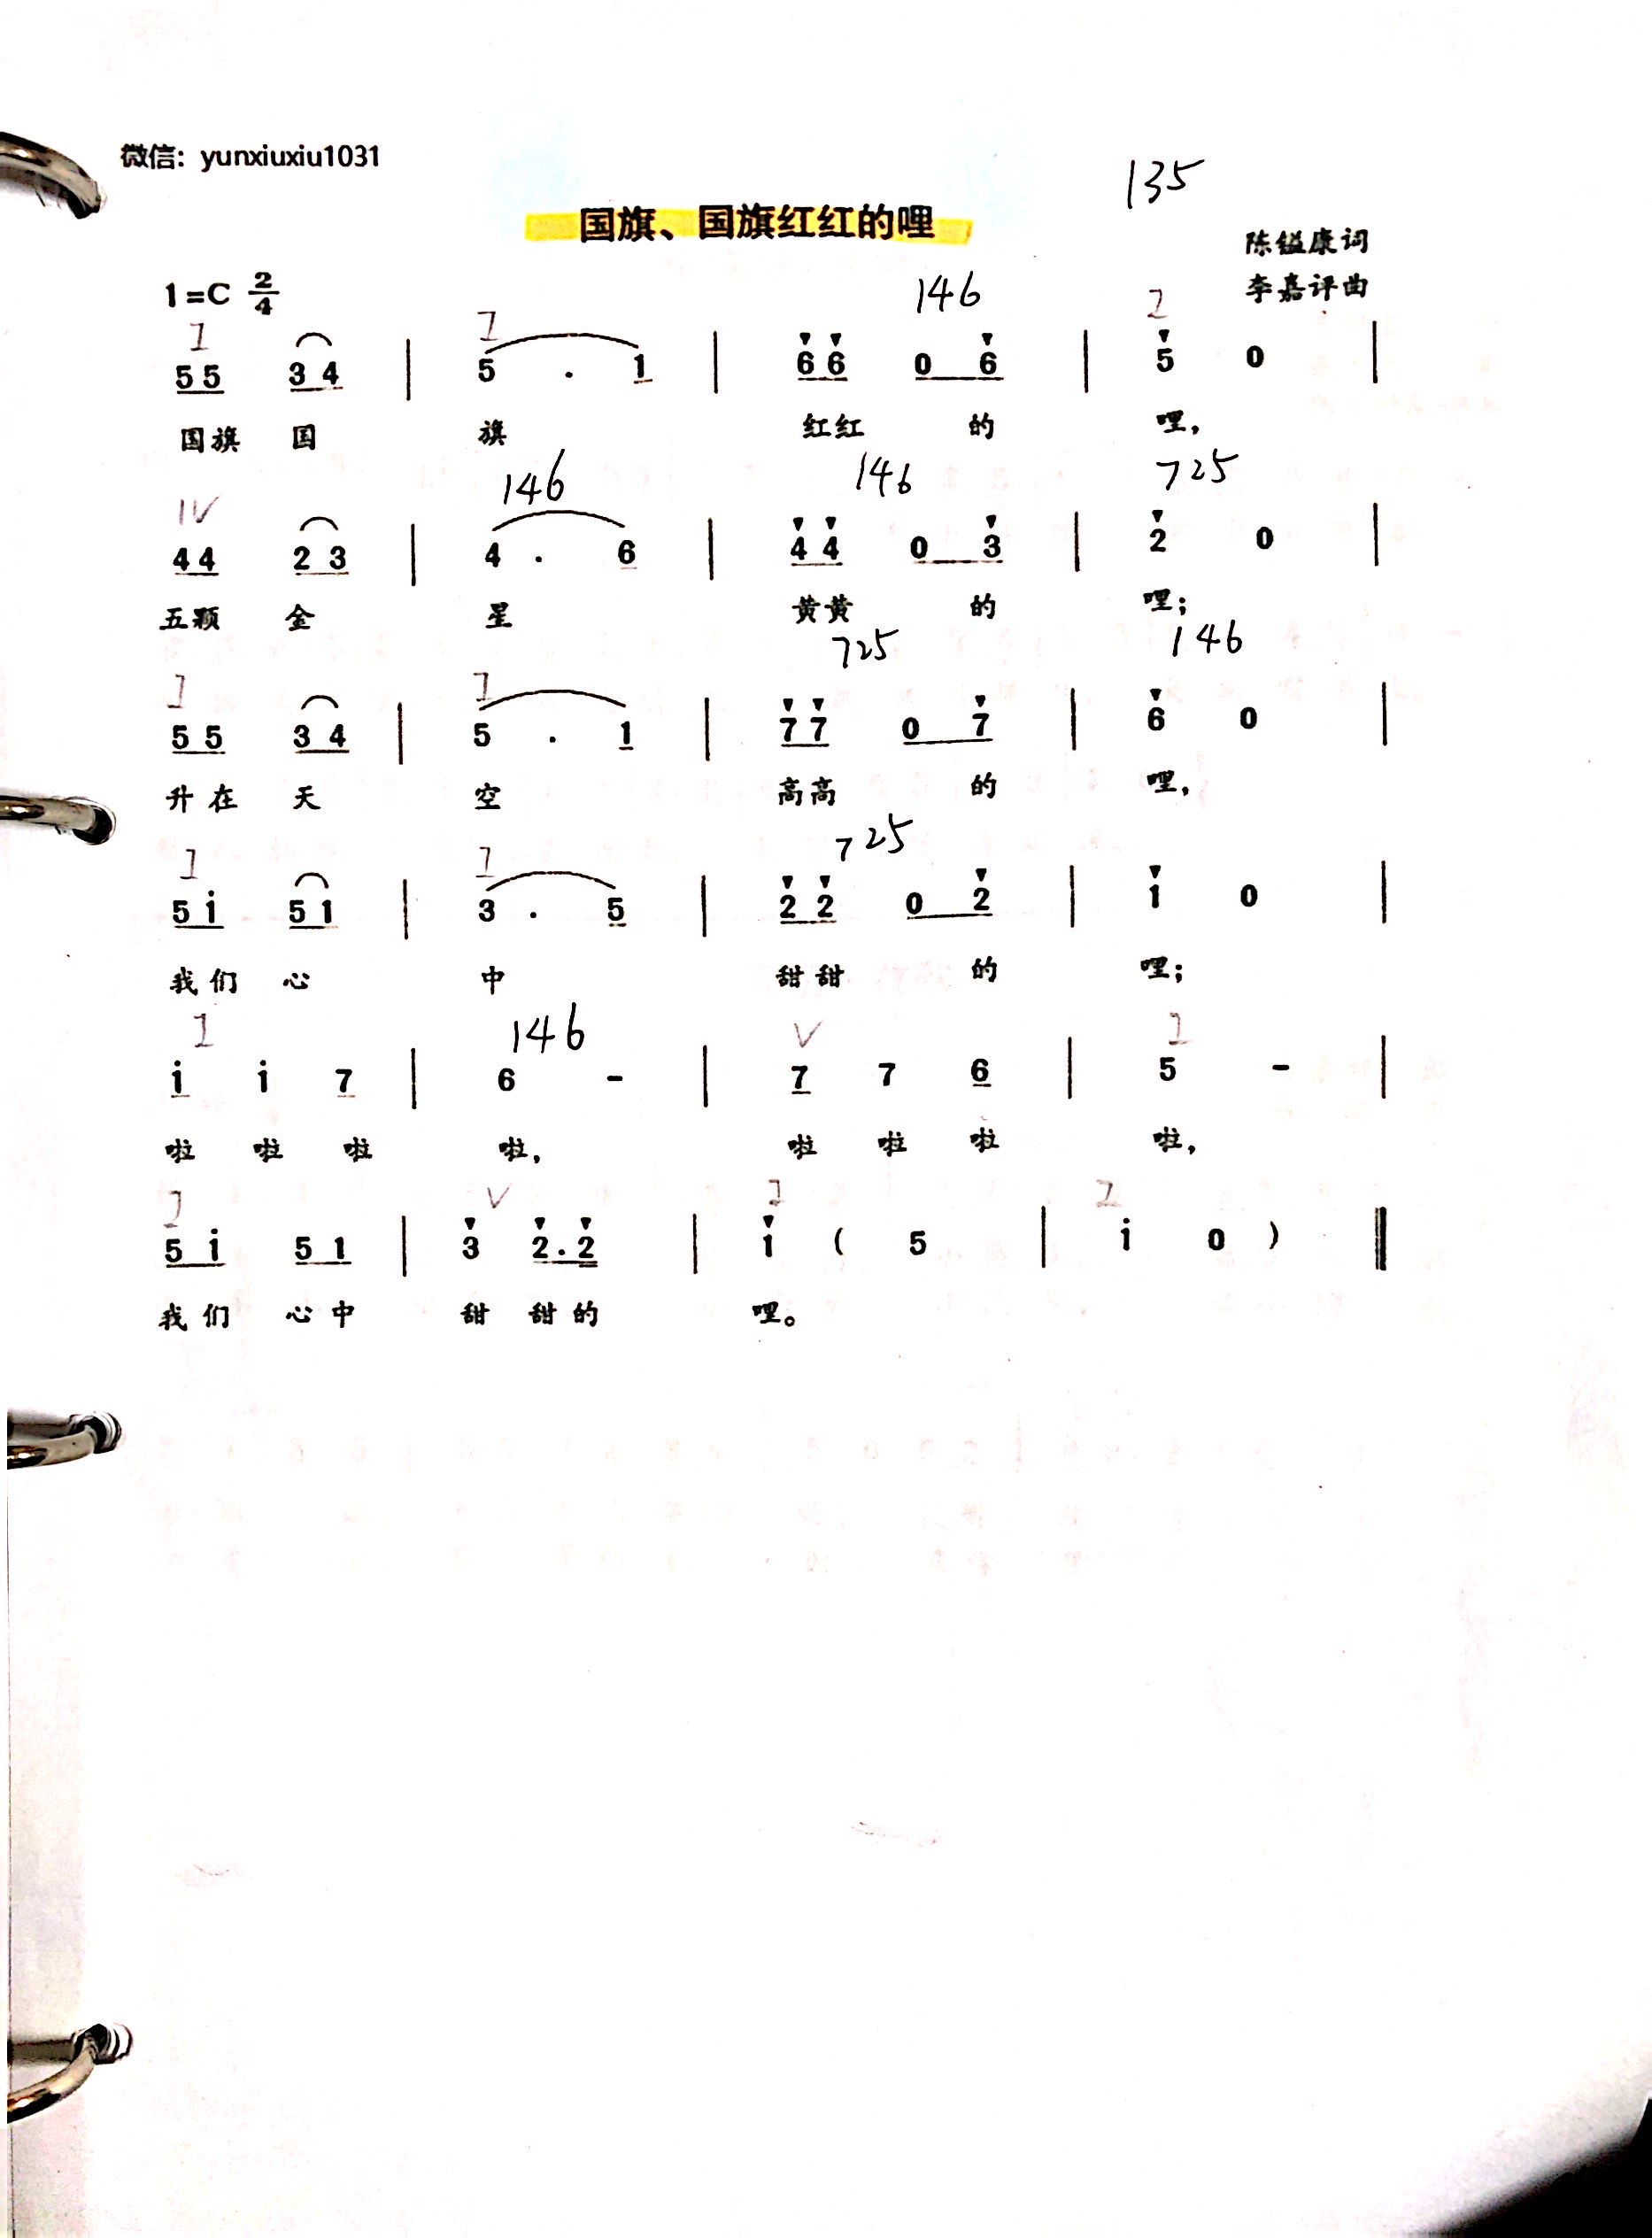 微信：yunxiuxiu1031
135
国旗、国旗红红的哩
陈镒康词
1=C 2/4
146
李嘉评曲
I I I
5 5 3 4 | 5 . 1 | 6 6 0 6 | 5 0 |
国旗 国 旗 红红 的 哩，
IV 146 146 725
4 4 2 3 | 4 . 6 | 4 4 0 3 | 2 0 |
五颗 金 星 黄黄 的 哩；
I I 725 146
5 5 3 4 | 5 . 1 | 7 7 0 7 | 6 0 |
升在 天 空 高高 的 哩，
I I 725
5 i 5 1 | 3 . 5 | 2 2 0 2 | 1 0 |
我们 心 中 甜甜 的 哩；
I 146 V I
i i 7 | 6 - | 7 7 6 | 5 - |
啦 啦 啦 啦， 啦 啦 啦 啦，
I V I I
5 i 5 1 | 3 2.2 | 1 ( 5 | i 0 ) ‖
我们 心中 甜 甜的 哩。